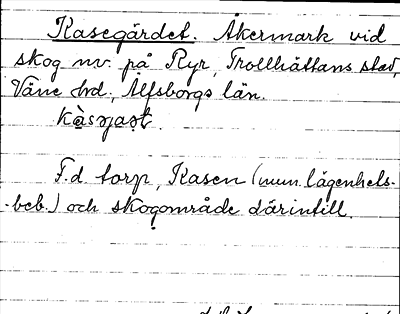 Kasegärdet. Åkermark vid
skog nv. på Ryr, Trollhättans stad,
Väne hd., Älfsborgs län.
F.d. torp, Kasen (num. lägenhets-
-beb.) och skogområde därintill.